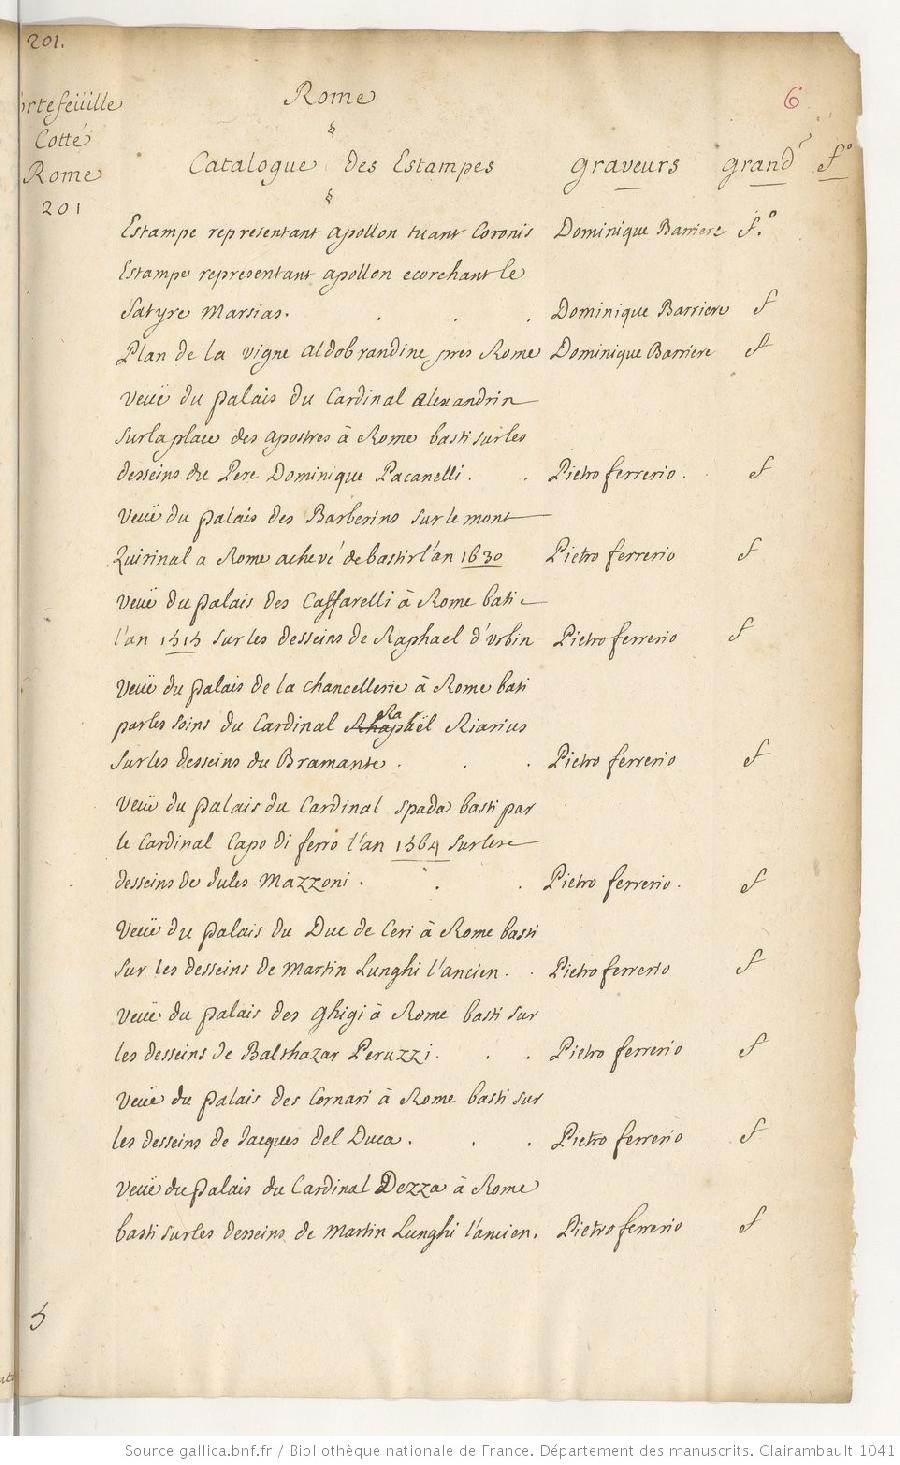 201.
rtefeüille Rome 6
Cotté
Rome Catalogue des Estampes graveurs grandr f°
201
Estampe representant apollon tuant Coronis Dominique Barriere f.°
Estampe representant apollon ecorchant le
Satyre Marsias. . . . Dominique Barriere f
Plan de la vigne aldobrandine pres Rome Dominique Barriere f
Veuë du palais du Cardinal alexandrin
sur la place des apostres à Rome basti sur les
desseins du Pere Dominique Pacanelli. . Pietro ferrerio. f
Veuë du palais des Barberins sur le mont
Quirinal a Rome achevé de bastir l'an 1630 Pietro ferrerio f
Veuë du palais des Caffarelli à Rome bati
l'an 1515 sur les desseins de Raphael d'urbin Pietro ferrerio f
Veuë du palais de la chancellerie à Rome bati
par les soins du Cardinal Raphaël Riarius
sur les desseins du Bramante. . . Pietro ferrerio f
Veuë du palais du Cardinal spada basti par
le Cardinal Capo di ferro l'an 1564 sur les
desseins de Jules Mazzoni. . . Pietro ferrerio. f
Veuë du palais du Duc de Ceri à Rome basti
sur les desseins de Martin Lunghi l'ancien. . Pietro ferrerio f
Veuë du palais des Ghigi à Rome basti sur
les desseins de Balthazar Peruzzi. . . Pietro ferrerio f
Veuë du palais des Cornari à Rome basti sur
les desseins de Jacques del Duca. . . Pietro ferrerio f
Veuë du palais du Cardinal Dezza à Rome
basti sur les desseins de Martin Lunghi l'ancien. Pietro ferrerio f
5
Source gallica.bnf.fr / Bibliothèque nationale de France. Département des manuscrits. Clairambault 1041